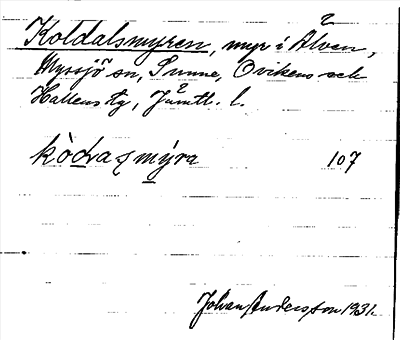 Koldalsmyren, myr i Älven,
Myssjö sn, Sunne, Ovikens och
Hallens tg, Jämtl. l.
kòdrasmýra 107
Johan Andersson 1931.